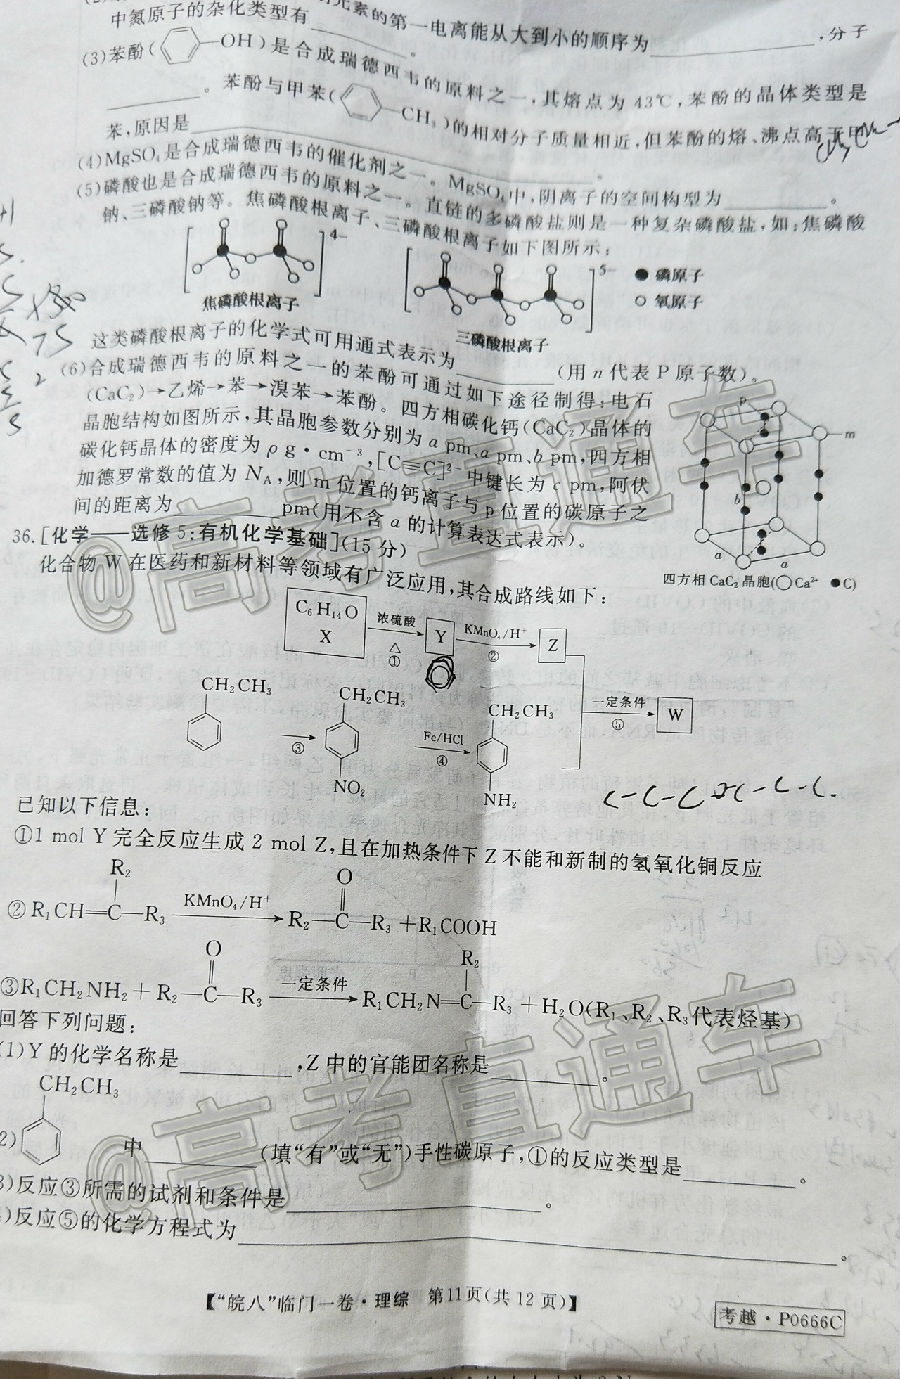 中氮原子的杂化类型有________。 元素的第一电离能从大到小的顺序为________,分子
(3)苯酚( —OH)是合成瑞德西韦的原料之一,其熔点为 43℃,苯酚的晶体类型是
________。苯酚与甲苯( —CH₃)的相对分子质量相近,但苯酚的熔、沸点高于甲
苯,原因是________。
(4)MgSO₄是合成瑞德西韦的催化剂之一。MgSO₄中,阴离子的空间构型为________。
(5)磷酸也是合成瑞德西韦的原料之一。直链的多磷酸盐则是一种复杂磷酸盐,如:焦磷酸
钠、三磷酸钠等。焦磷酸根离子、三磷酸根离子如下图所示:
4−
5−
●磷原子
○氧原子
焦磷酸根离子
三磷酸根离子
这类磷酸根离子的化学式可用通式表示为________(用 n 代表 P 原子数)。
(6)合成瑞德西韦的原料之一的苯酚可通过如下途径制得:电石
(CaC₂)→乙烯→苯→溴苯→苯酚。四方相碳化钙(CaC₂)晶体的
晶胞结构如图所示,其晶胞参数分别为 a pm、a pm、b pm,四方相
碳化钙晶体的密度为 ρ g·cm⁻³,[C≡C]²⁻中键长为 c pm,阿伏
加德罗常数的值为 N_A,则 m 位置的钙离子与 p 位置的碳原子之
间的距离为________pm(用不含 a 的计算表达式表示)。
p
m
b
a
a
四方相 CaC₂ 晶胞(○Ca²⁺ ●C)
36.[化学——选修 5:有机化学基础](15 分)
化合物 W 在医药和新材料等领域有广泛应用,其合成路线如下:
C₆H₁₄O
X
浓硫酸
△
①
Y
KMnO₄/H⁺
②
Z
CH₂CH₃
③
CH₂CH₃
NO₂
Fe/HCl
④
CH₂CH₃
NH₂
一定条件
⑤
W
已知以下信息:
①1 mol Y 完全反应生成 2 mol Z,且在加热条件下 Z 不能和新制的氢氧化铜反应
R₂
②R₁CH=C—R₃
KMnO₄/H⁺
O
R₂—C—R₃+R₁COOH
O
R₂
③R₁CH₂NH₂+R₂—C—R₃
一定条件
R₁CH₂N=C—R₃+H₂O(R₁、R₂、R₃代表烃基)
回答下列问题:
(1)Y 的化学名称是________,Z 中的官能团名称是________。
CH₂CH₃
2) 中________(填“有”或“无”)手性碳原子,①的反应类型是________。
3)反应③所需的试剂和条件是________。
)反应⑤的化学方程式为________。
【“皖八”临门一卷·理综 第11页(共 12 页)】
考越·P0666C
@高考直通车
@高考直通车